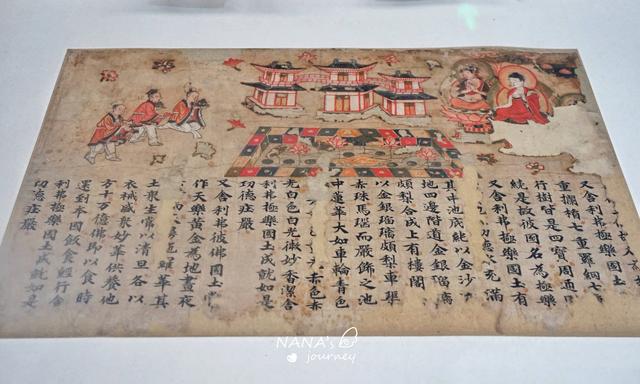 又舍利弗極樂國土
重欄楯七重羅網七
行樹皆是四寶周迊
繞是故彼國名為極樂
又舍利弗極樂國土有
充滿
其中池底純以金沙
地四邊階道金銀瑠璃
頗梨合成上有樓閣
以金銀瑠璃頗梨車𤦲
赤珠馬瑙而嚴飾之池
中蓮華大如車輪青色
赤色赤
光白色白光微妙香潔舍
利弗極樂國土成就如是
功德莊嚴
又舍利弗彼佛國土常
作天樂黃金為地晝夜
而雨 華其
土衆生常以清旦各以
衣裓盛衆妙華供養他
方十万億佛即以食時
還到本國飯食經行舍
利弗極樂國土成就如是
功德莊嚴
NANA's
journey